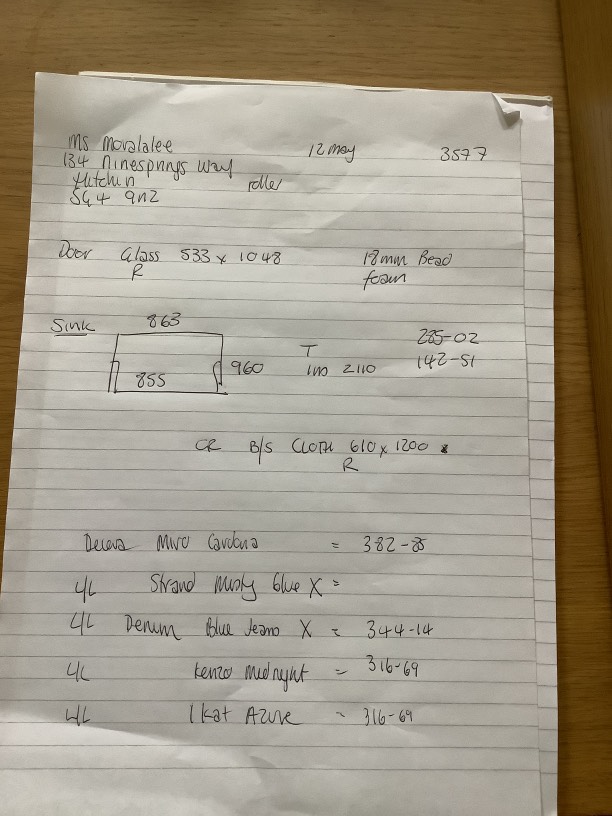 Ms Movalalee 12 May 3577
134 Ninesprings Way
Hitchin roller
SG4 9NZ
Door Glass 533 x 1048 18mm Bead
R foam
Sink 863
855 960
T 285-02
2110 142-51
CR B/S CLOTH 610 x 1200
R
Miro Cardona = 382-85
L/L Strand Misty Blue X =
L/L Denim Blue Jeans X = 344-14
L/L Kenzo Midnight = 316-69
L/L Ikat Azure = 316-69